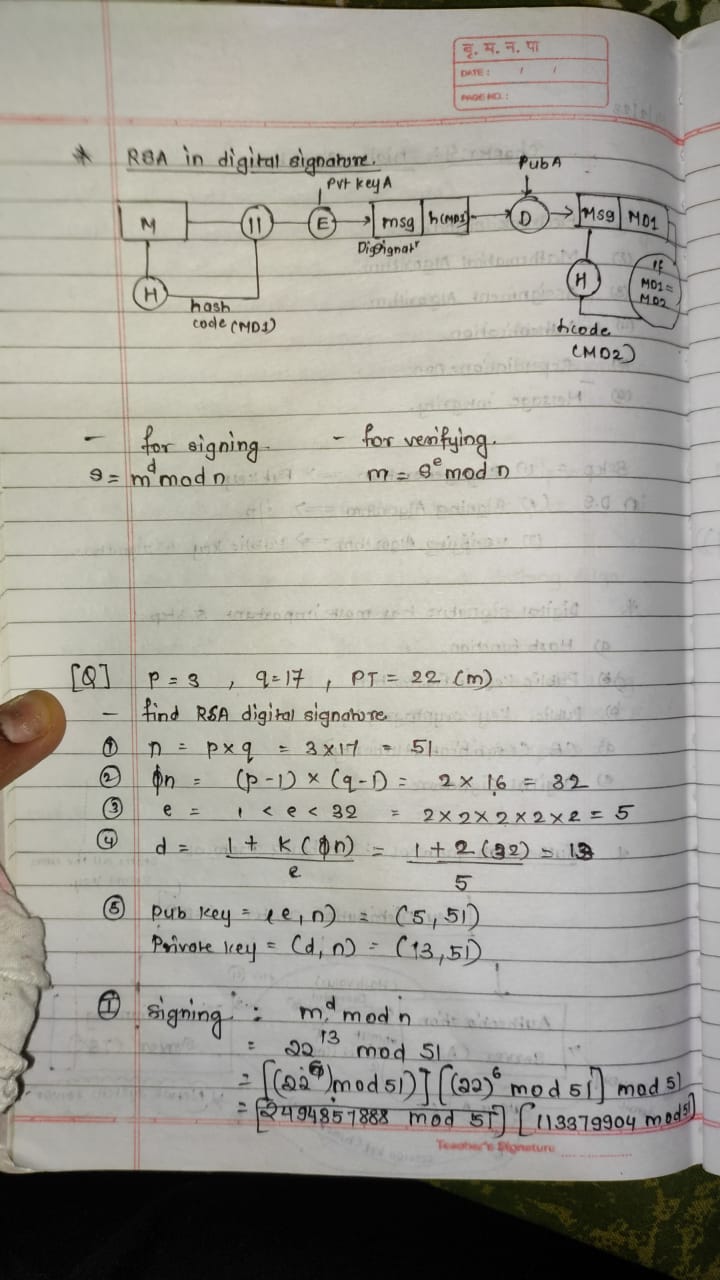 बृ. म. न. पा
DATE: / /
PAGE NO.:
* RSA in digital signature.
Pvt key A
Pub A
M || E msg h(MD1) D Msg MD1
H
hash code (MD1)
H
If MD1 = MD2
hcode (MD2)
- for signing
- for verifying.
s = m^d mod n
m = s^e mod n
[Q] P = 3 , q = 17 , PT = 22 (m)
- find RSA digital signature
① n = p x q = 3 x 17 = 51
② ϕn = (p-1) x (q-1) = 2 x 16 = 32
③ e = 1 < e < 32 = 2 x 2 x 2 x 2 x 2 = 5
④ d = 1 + k (ϕn) / e = 1 + 2 (32) / 5 = 13
⑤ Pub key = (e, n) = (5, 51)
Private key = (d, n) = (13, 51)
Ⓘ signing : m^d mod n
= 22^13 mod 51
= [(22^7) mod 51)] [(22)^6 mod 51] mod 51
= [2494357888 mod 51] [113379904 mod 51]
Teacher's Signature